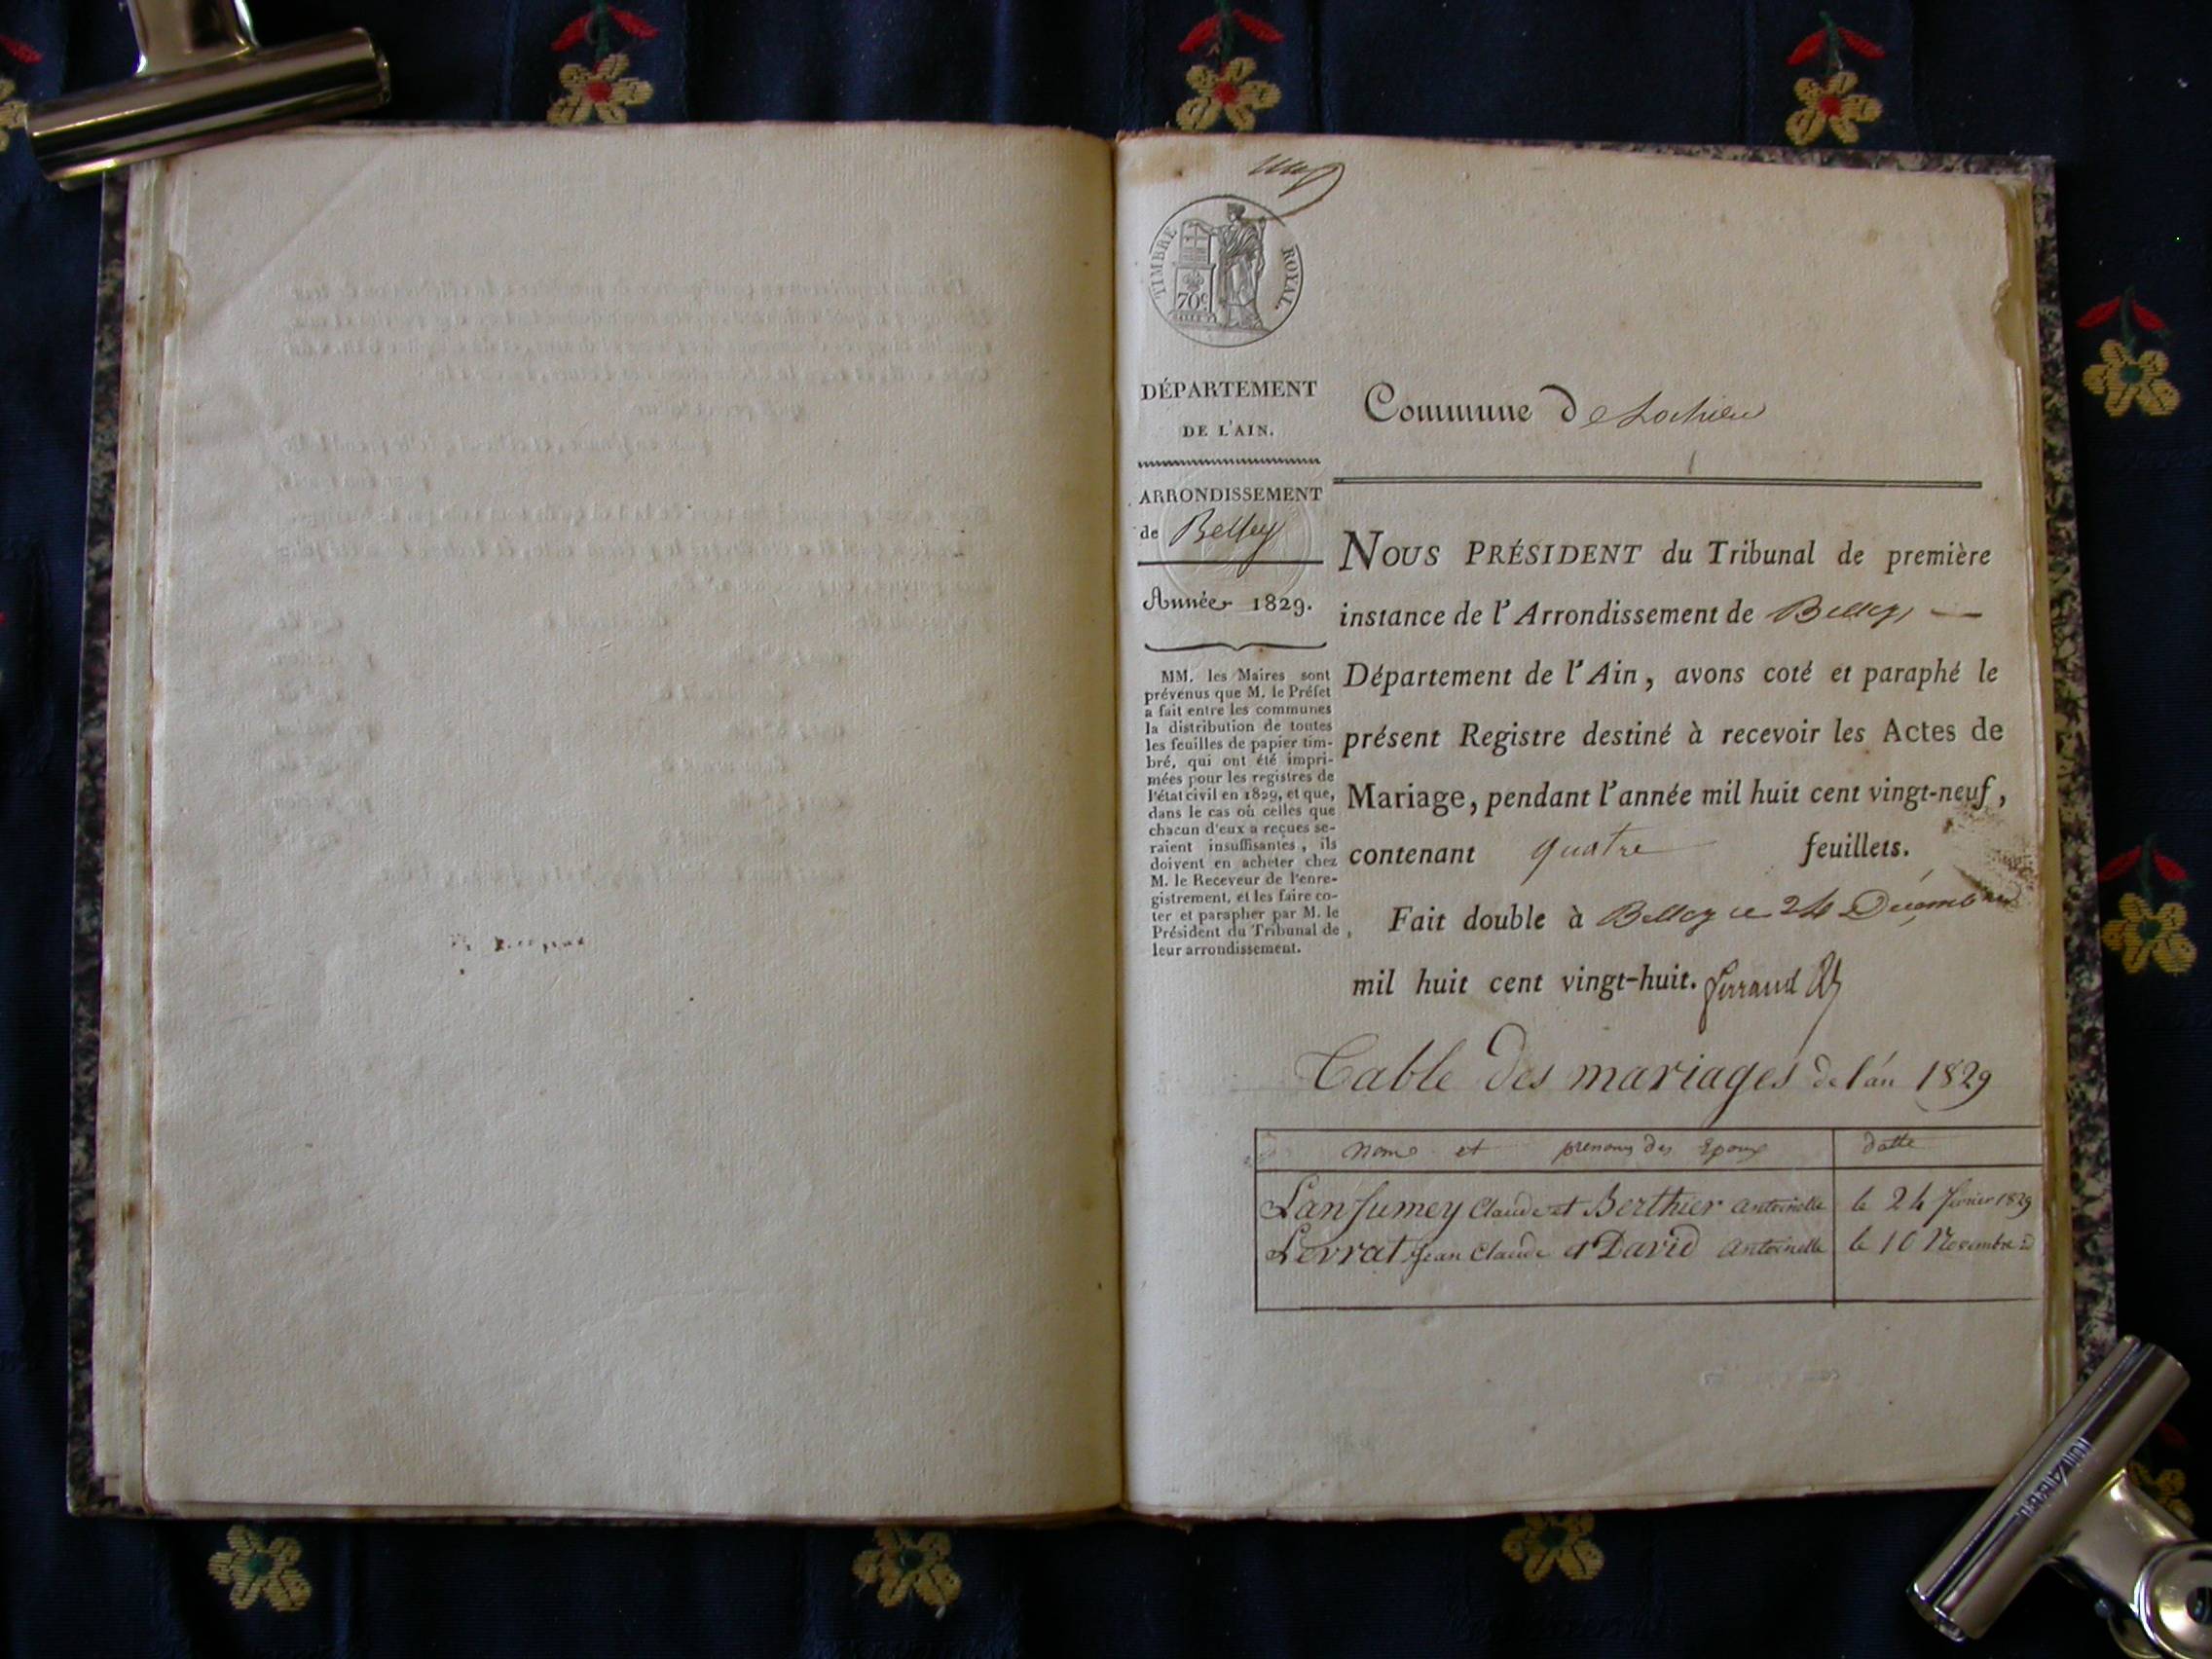 TIMBRE ROYAL
70c
DÉPARTEMENT
DE L'AIN.
ARRONDISSEMENT
de Belley
Année 1829.
MM. les Maires sont
prévenus que M. le Préfet
a fait entre les communes
la distribution de toutes
les feuilles de papier tim-
bré, qui ont été impri-
mées pour les registres de
l'état civil en 1829, et que,
dans le cas où celles que
chacun d'eux a reçues se-
raient insuffisantes, ils
doivent en acheter chez
M. le Receveur de l'enre-
gistrement, et les faire co-
ter et parapher par M. le
Président du Tribunal de
leur arrondissement.
Commune de Lochieu
NOUS PRÉSIDENT du Tribunal de première
instance de l'Arrondissement de Belley
Département de l'Ain, avons coté et paraphé le
présent Registre destiné à recevoir les Actes de
Mariage, pendant l'année mil huit cent vingt-neuf,
contenant quatre feuillets.
Fait double à Belley le 24 Décembre
mil huit cent vingt-huit. ferrand
Table des mariages de l'an 1829
noms et prenoms des Epoux datte
Lanfumey Claude et Berthier antoinette le 24 fevrier 1829
Levrat jean Claude et David antoinette le 10 Novembre id